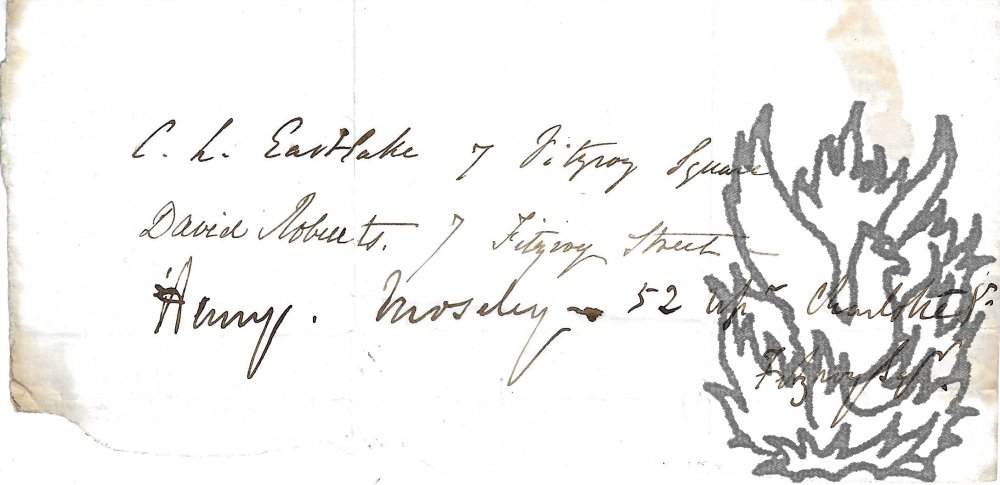 C. L. Eastlake 7 Fitzroy Square
David Roberts. 7 Fitzroy Street
Henry. Moseley 52 Upr Charlotte St
Fitzroy Sqr.